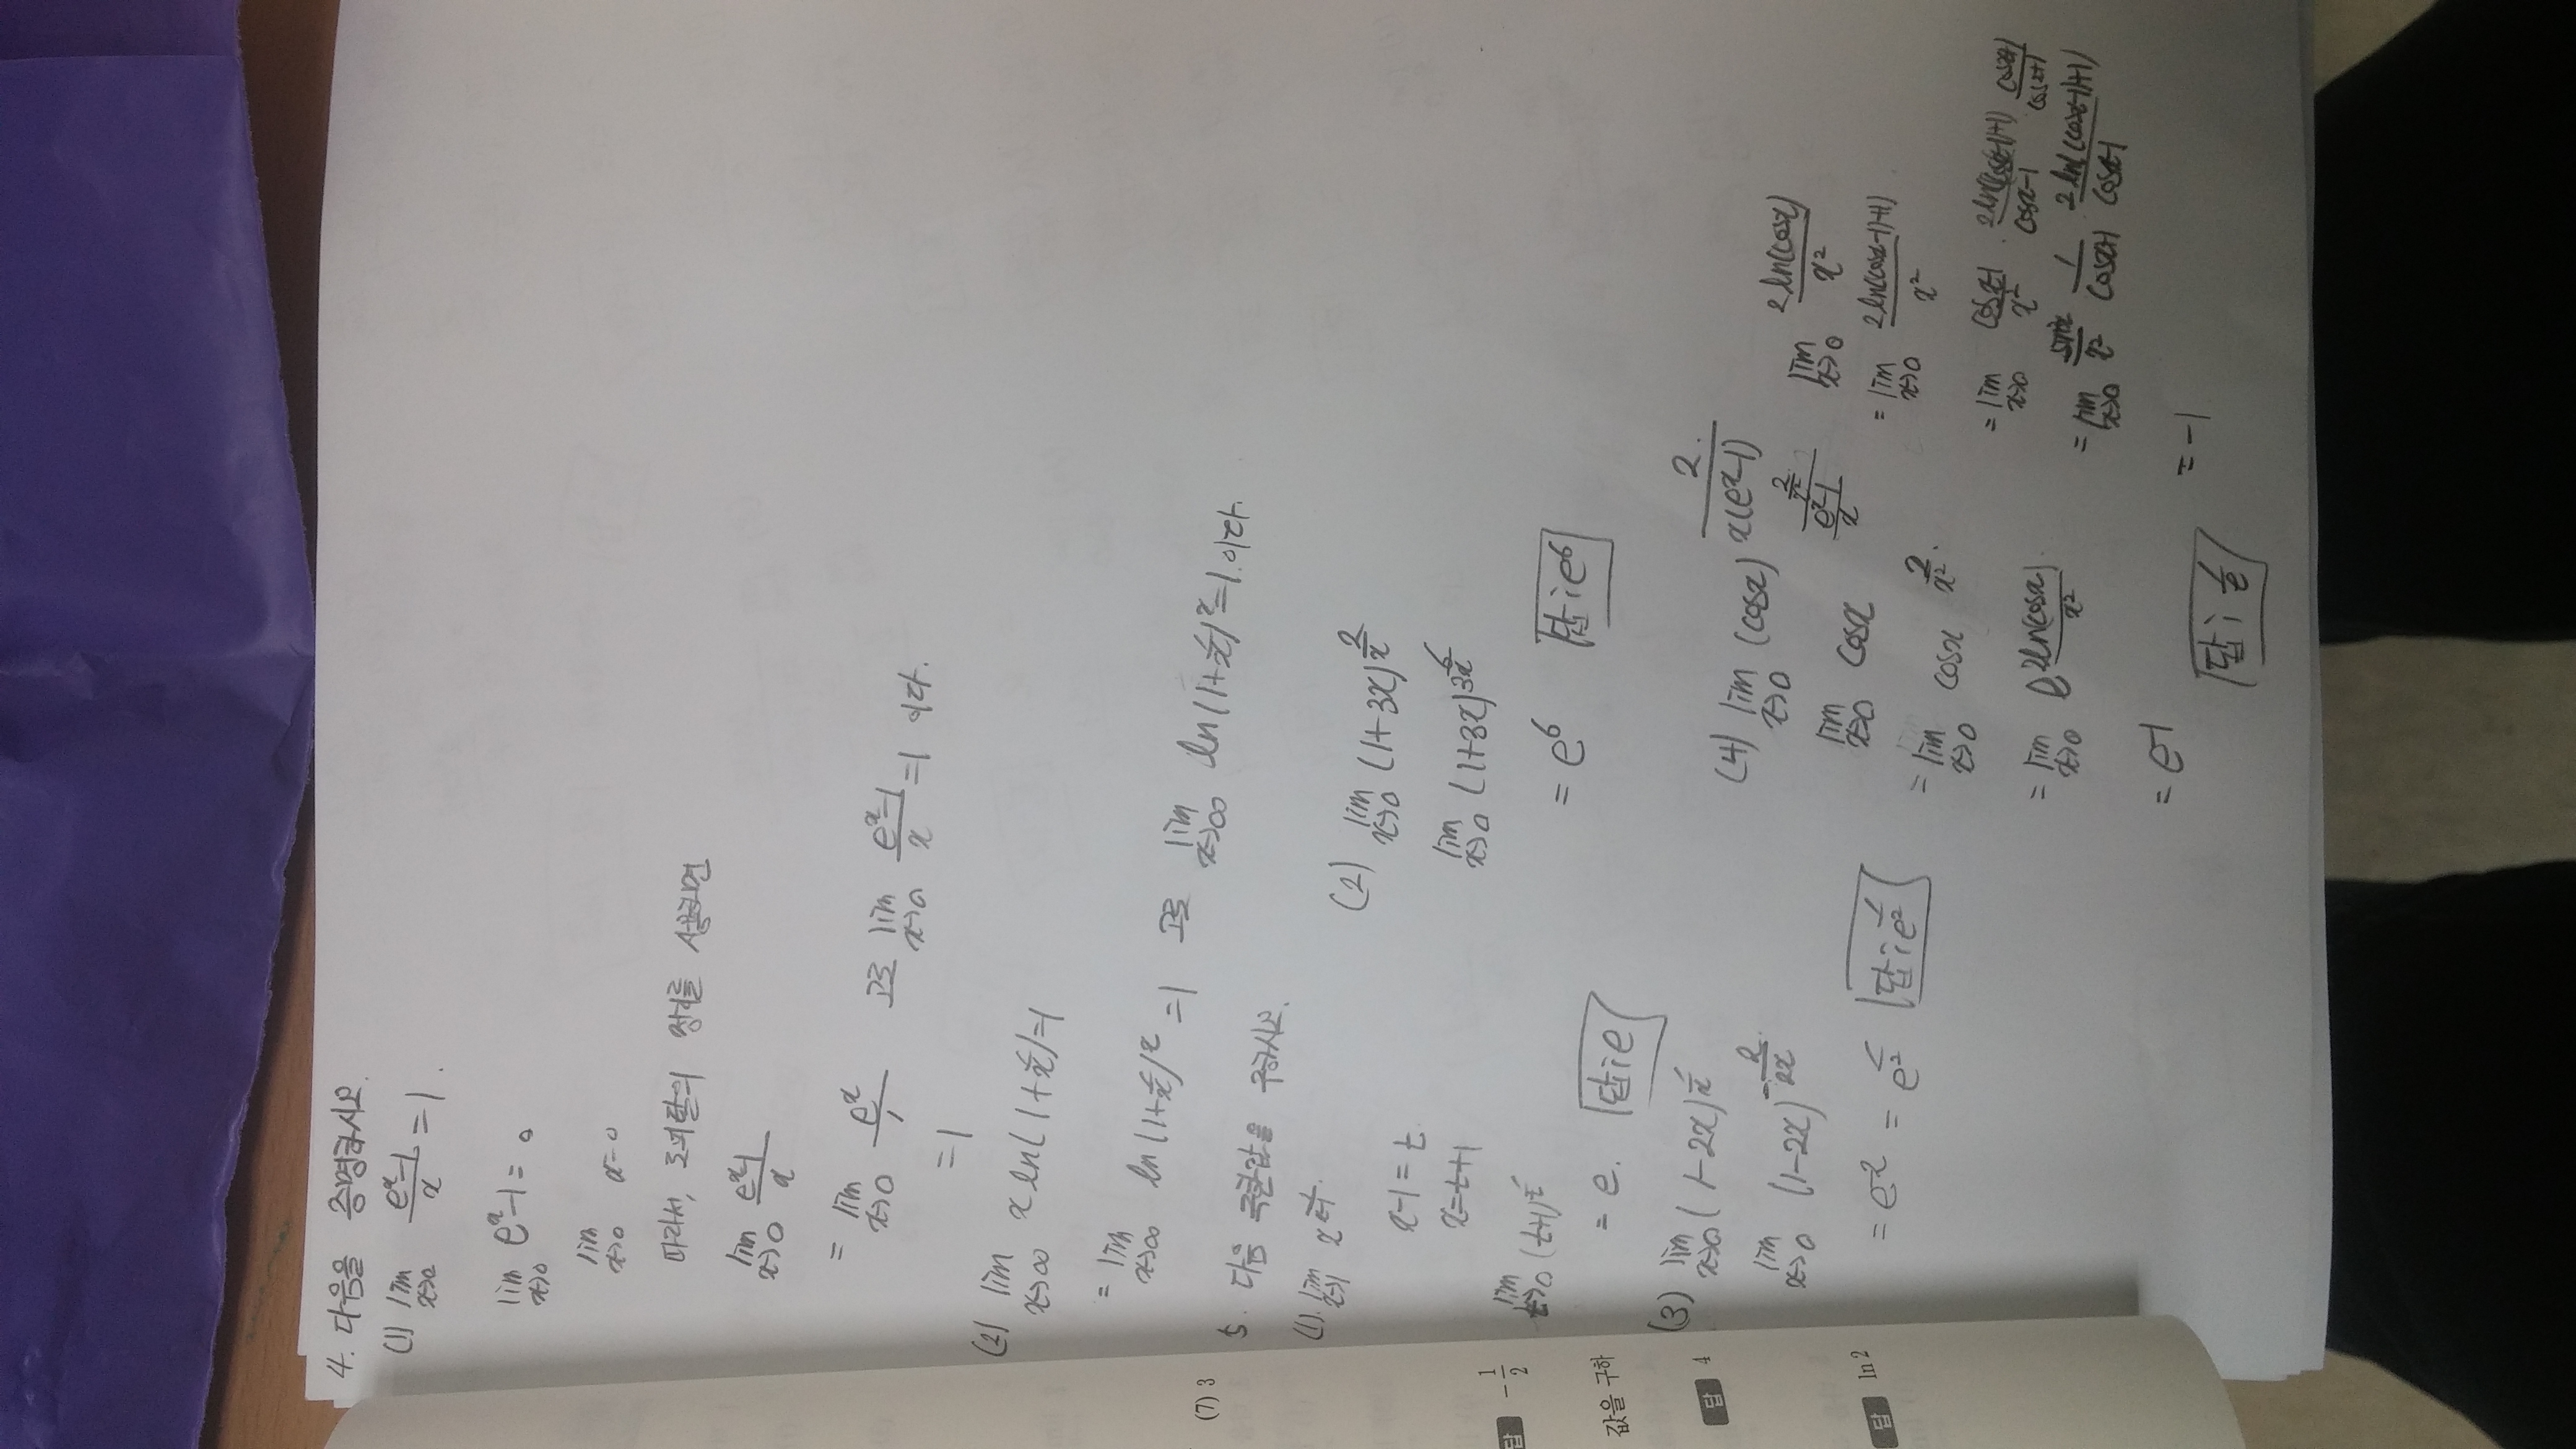 4. 다음을 증명하시오.
(1) lim x→0 (e^x-1)/x = 1.
lim x→0 e^x-1 = 0
lim x→0 x=0
따라서, 로피탈의 정리를 사용하면
lim x→0 (e^x-1)/x
= lim x→0 e^x/1 고로 lim x→0 (e^x-1)/x = 1 이다.
= 1
(2) lim x→∞ x ln(1+1/x)=1
= lim x→∞ ln(1+1/x)^x = 1 고로 lim x→∞ ln(1+1/x)^x = 1.이다.
5. 다음 극한값을 구하시오.
(1). lim x→1 x^(1/(x-1)).
x-1=t
x=t+1
lim t→0 (t+1)^(1/t)
= e. 답; e
(2) lim x→0 (1+3x)^(2/x)
lim x→0 (1+3x)^(6/3x)
= e^6 답; e^6
(3) lim x→0 (1-2x)^(1/x)
lim x→0 (1-2x)^(-2/2x)
= e^-2 = 1/e^2 답; 1/e^2
(4) lim x→0 (cosx)^(2/(x(e^x-1)))
lim x→0 cosx^((2/x^2)/((e^x-1)/x))
= lim x→0 cosx^(2/x^2).
= lim x→0 e^(2ln(cosx)/x^2)
= e^-1
답; 1/e
lim x→0 2ln(cosx)/x^2
= lim x→0 2ln(cosx-1)+1)/x^2
= lim x→0 (cosx-1)/x^2 · 2ln((cosx-1)+1)/(cosx-1) (cosx+1)/(cosx+1)
= lim x→0 sin^2x/x^2 1/(cosx+1) 2ln((cosx-1)+1)/(cosx-1)
= -1
(7) 3
답 -1/2
값을 구하
답 4
답 ln 2